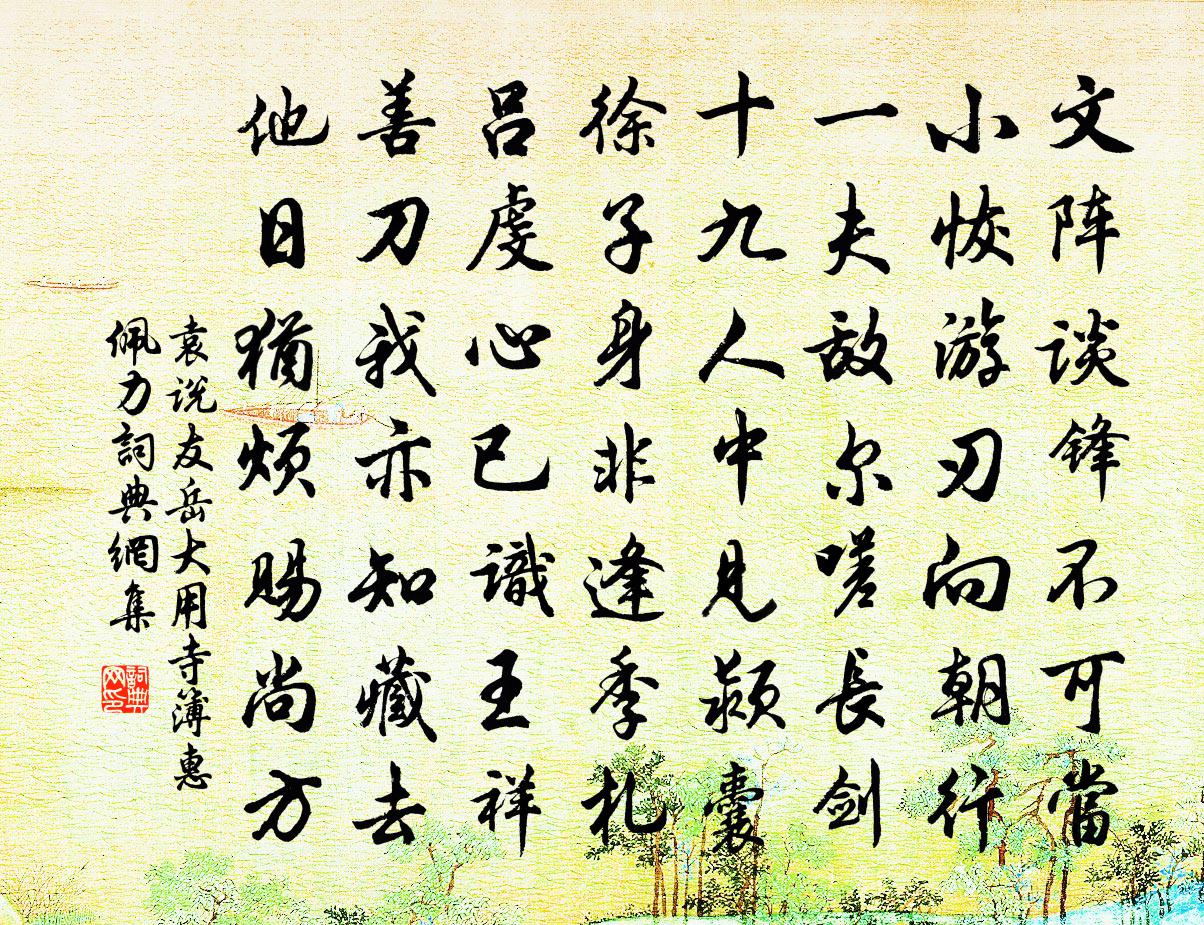 文阵谈锋不可當
小恢游刃向朝行
一夫敌尔嗟長剑
十九人中見颍囊
徐子身非逢季札
吕虔心已識王祥
善刀我亦知藏去
他日猶烦賜尚方
袁说友岳大用寺簿惠
佩力詞典網集
詞典